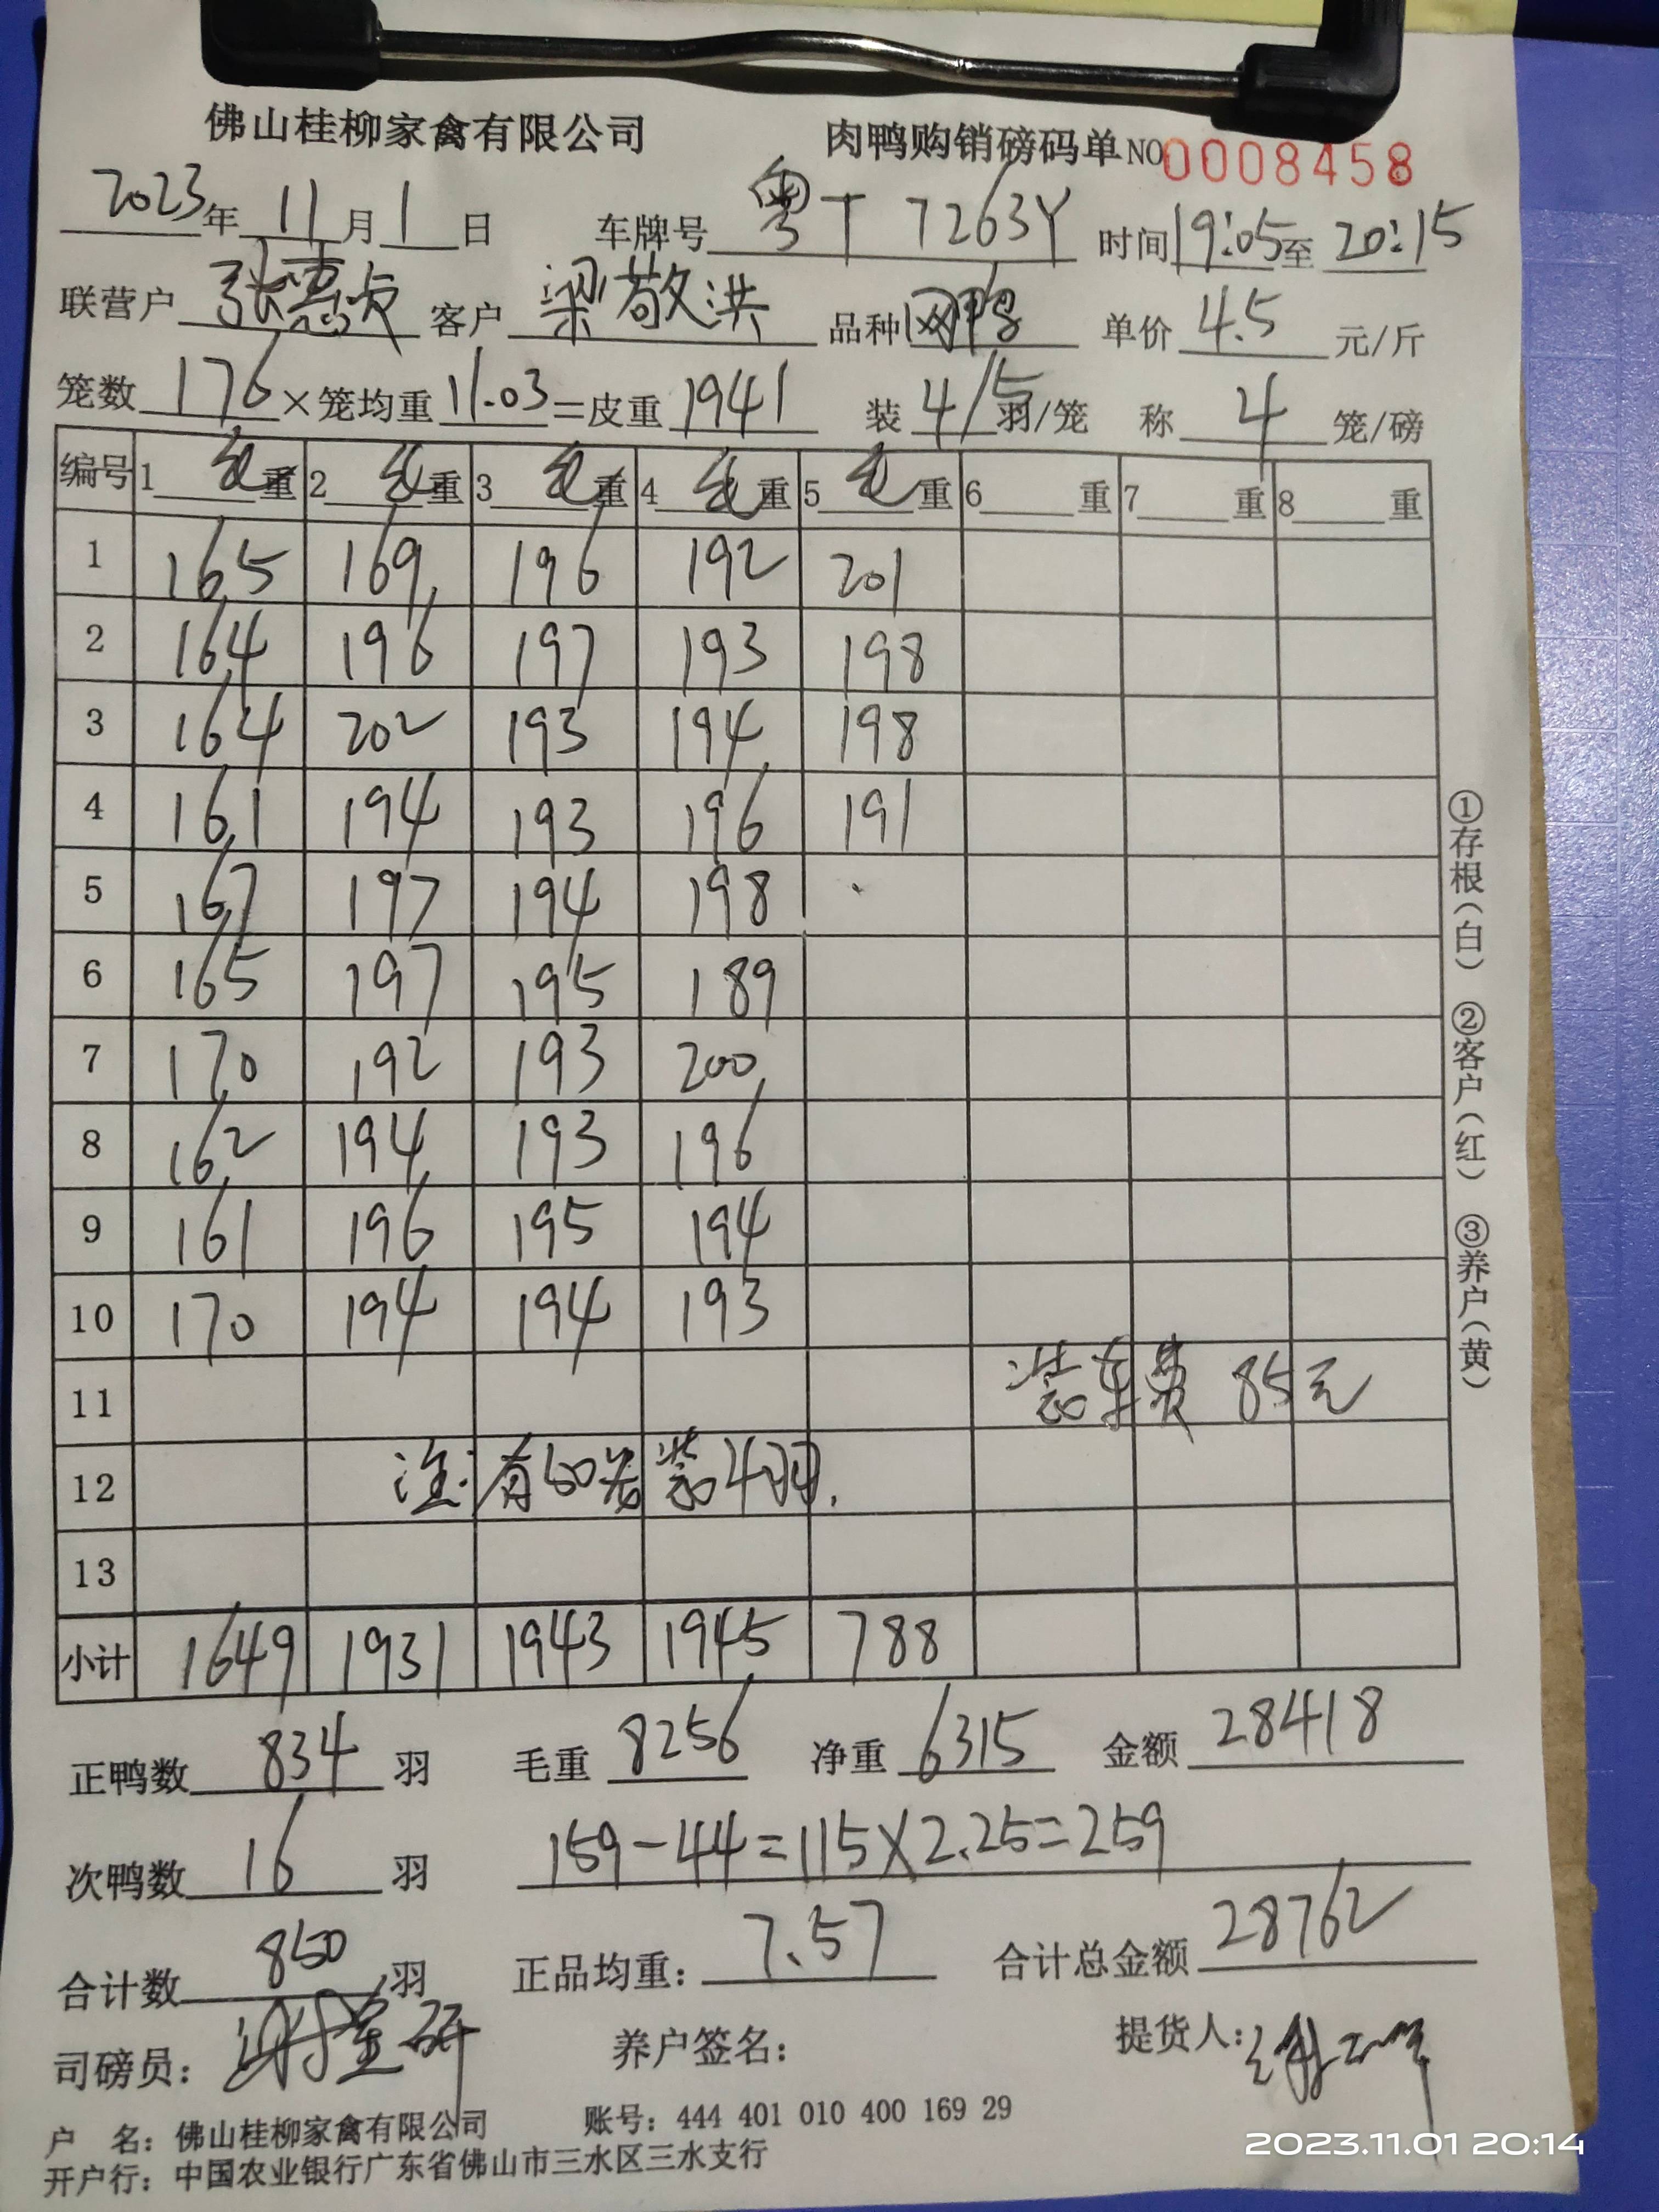 佛山桂柳家禽有限公司 肉鸭购销磅码单 NO 0008458
2023年 11月 1日 车牌号 粤T 7263Y 时间 19:05至 20:15
联营户 张惠贞 客户 梁敬洪 品种 网鸭 单价 4.5 元/斤
笼数 176 ×笼均重 11.03 =皮重 1941 装 4/5 羽/笼 称 4 笼/磅
编号 1 毛重 2 毛重 3 毛重 4 毛重 5 毛重 6 重 7 重 8 重
1 165 169 196 192 201
2 164 196 197 193 198
3 164 202 193 194 198
4 161 194 193 196 191
5 167 197 194 198
6 165 197 195 189
7 170 192 193 200
8 162 194 193 196
9 161 196 195 194
10 170 194 194 193
11 装车费 85元
12 注:有50笼装4羽.
13
小计 1649 1931 1943 1945 788
正鸭数 834 羽 毛重 8256 净重 6315 金额 28418
次鸭数 16 羽 159-44=115×2.25=259
合计数 850 羽 正品均重: 7.57 合计总金额 28762
司磅员: 养户签名: 提货人:
户 名: 佛山桂柳家禽有限公司 账号: 444 401 010 400 169 29
开户行: 中国农业银行广东省佛山市三水区三水支行
①存根(白) ②客户(红) ③养户(黄)
2023.11.01 20:14